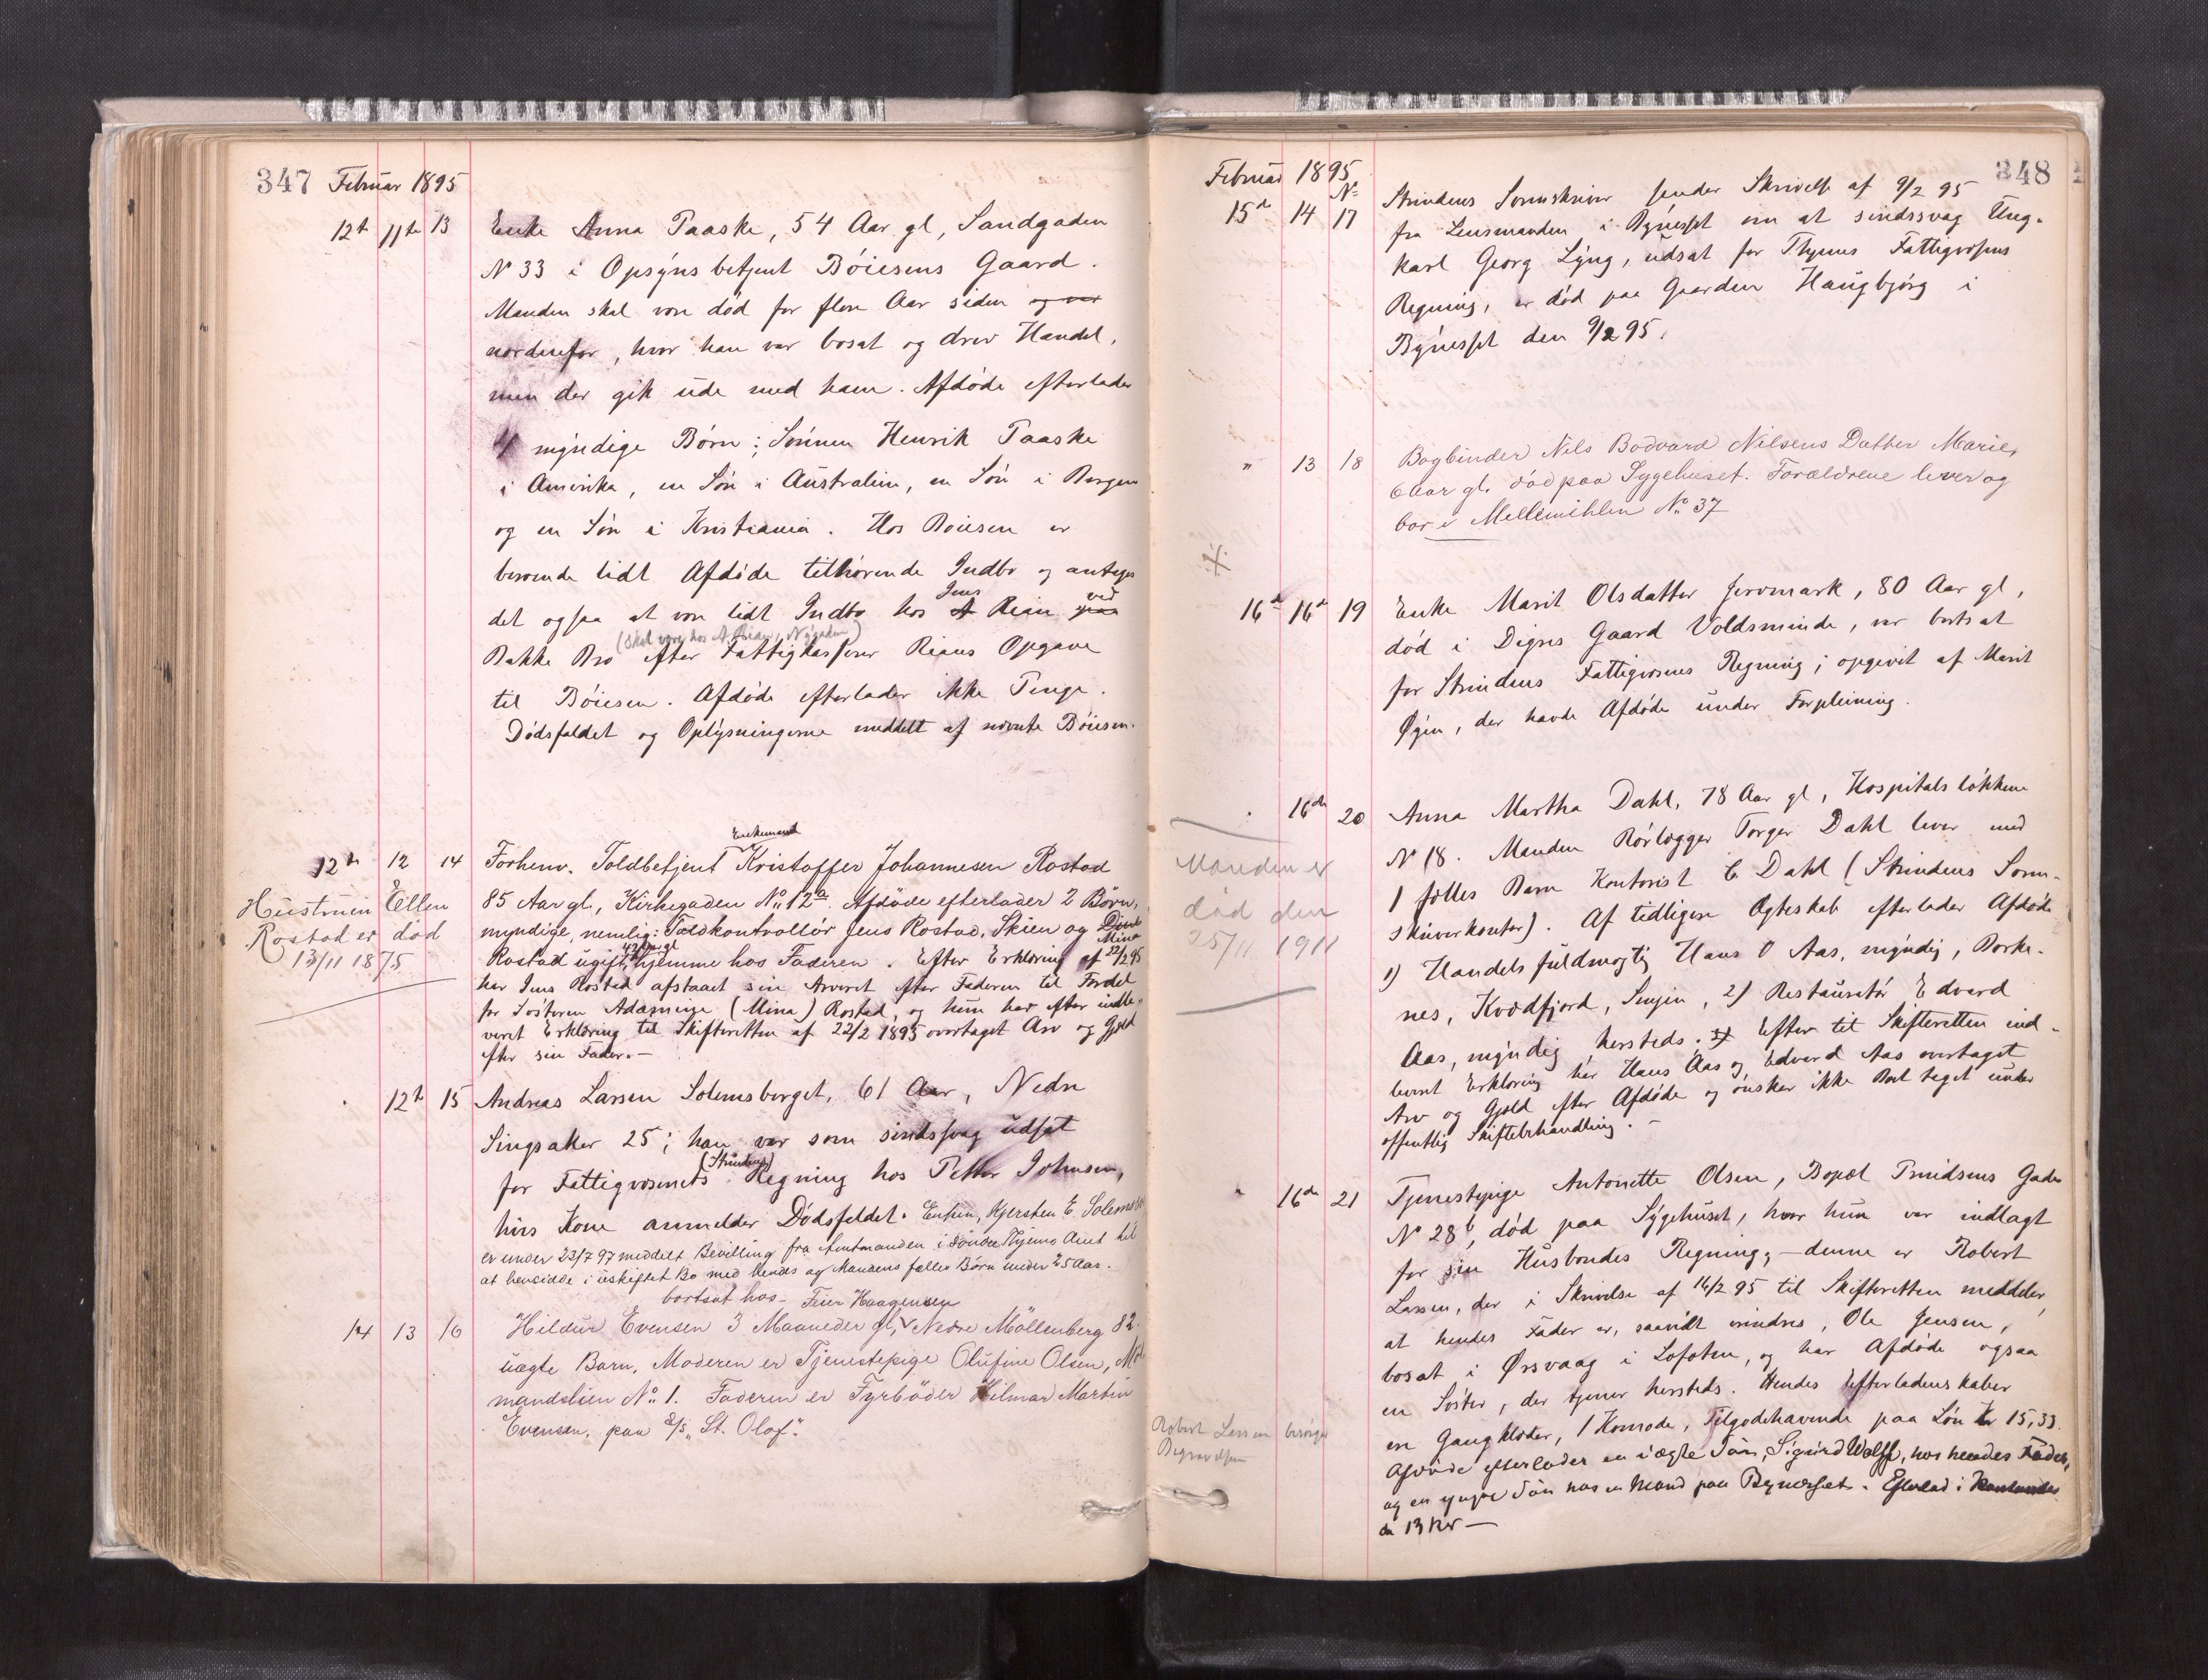 347 Februar 1895
12te 11te 13 Enke Anna Paaske, 54 Aar gl, Sandgaden
N 33 i Opsynsbetjent Böiesens Gaard.
Manden skal være död for flere Aar siden og var
nordenfor, hvor han var bosat og drev Handel,
men der gik ude med ham. Afdöde efterlader
4 myndige Börn: Sönnen Henrik Paaske
i Amerika, en Sön i Australien, en Sön i Bergen
og en Sön i Kristiania. Hos Böiesen er
beroende lidt Afdöde tilhörende Indbo og antages
det ogsaa at være lidt Indbo hos Jens Rian ved
(skal være hos A. Rian, Nygaden)
Bakke Bro efter Fattigkasserer Rians Opgave
til Böiesen. Afdöde efterlader ikke Penge.
Dödsfaldet og Oplysningerne meddelt af nævnte Böiesen.
Enkemand
12te 12 14 Forhenv. Toldbetjent Kristoffer Johannesen Rostad
85 Aar gl., Kirkegaden No 12a. Afdöde efterlader 2 Börn,
myndige, nemlig: Toldkontrollör Jens Rostad, Skien og
Mina
Rostad ugift, 42 Aar gl hjemme hos Faderen. Efter Erklæring af 22/2 95
har Jens Rostad afstaaet sin Arveret efter Faderen til Fordel
for Sösteren (Mina) Rostad, og hun har efter indle-
veret Erklæring til Skifteretten af 22/2 1895 overtaget Arv og Gjæld
efter sin Fader.—
Hustruen Ellen
Rostad er död
13/11 1875
12te 15 Andreas Larsen Solemsberget, 61 Aar, Nedre
Singsaker 25; han var som sindssvag udsat
for Fattigvæsenets (Strindens) Regning hos Petter Johnsen,
hvis Kone anmelder Dödsfaldet. Enken, Kjersten E. Solemsb
er under 23/7 97 meddelt Bevilling fra Amtmanden i Söndre Thjems Amt til
at hensidde i uskiftet Bo med hendes og Mandens fælles Börn under 25 Aar.
bortsat hos Feier Haagensen
14 13 16 Hildur Evensen 3 Maaneder gl, Nedre Möllenberg 82.
uægte Barn, Moderen er Tjenestepige Olufine Olsen,
mandslien No 1. Faderen er Fyrböder Hilmar Martin
Evensen, paa S/S „St. Olaf".
348
Februar 1895
No
15de 14 17 Strindens Sorenskriver sender Skrivelse af 9/2 95
fra Lensmanden i Bynesset om at sindssvag Ung-
karl Georg Lyng, udsat for Thjems Fattigvæsens
Regning, er död paa Gaarden Haugbjörg i
Bynesset den 9/2 95.
" 13 18 Bogbinder Nils Bodvard Nilsens Datter Marie,
6 Aar gl. död paa Sygehuset. Forældrene lever og
bor i Mellemihlen No 37
16de 16de 19 Enke Marit Olsdatter Jervmark, 80 Aar gl,
död i Digres Gaard Voldsminde, var bortsat
for Strindens Fattigvæsens Regning; opgivet af Marit
Øyen, der havde Afdöde under Forpleining.
" 16de 20 Anna Martha Dahl, 78 Aar gl, Hospitalslökken
N 18. Manden Rörlægger Torger Dahl lever med
1 fælles Barn Kontorist C Dahl (Strindens Soren-
skriverkontor). Af tidligere Ægteskab efterlader Afdöde
1) Handelsfuldmægtig Hans O Aas, myndig, Borke-
nes, Kvædfjord, Senjen, 2) Restauratör Edvard
Aas, myndig hersteds. Efter til Skifteretten ind-
leveret Erklæring har Hans Aas og Edvard Aas overtaget
Arv og Gjæld efter Afdöde og önsker ikke Boet taget under
offentlig Skiftebehandling.—
Manden er
död den
25/11 1911
" 16de 21 Tjenestepige Antonette Olsen, Bopæl Trondsens Gade
N 28b, död paa Sygehuset, hvor hun var indlagt
for sin Husbondes Regning,—denne er Robert
Larsen, der i Skrivelse af 16/2 95 til Skifteretten meddeler,
at hendes Fader er, saavidt erindres, Ole Jensen,
bosat i Ørsvaag i Lofoten, og har Afdöde ogsaa
en Söster, der tjener hersteds. Hendes Efterladenskaber
er Gangklæder, 1 Komode, Tilgodehavende paa Lön Kr 15,33.
Afdöde efterlader en uægte Sön, Sigurd Wolff, hos hendes Fader,
og en yngre Sön hos en Mand paa Bynesset. Efterlod i Kontanter
ca 13 Kr—
Robert Larsen besörger
Begravelsen